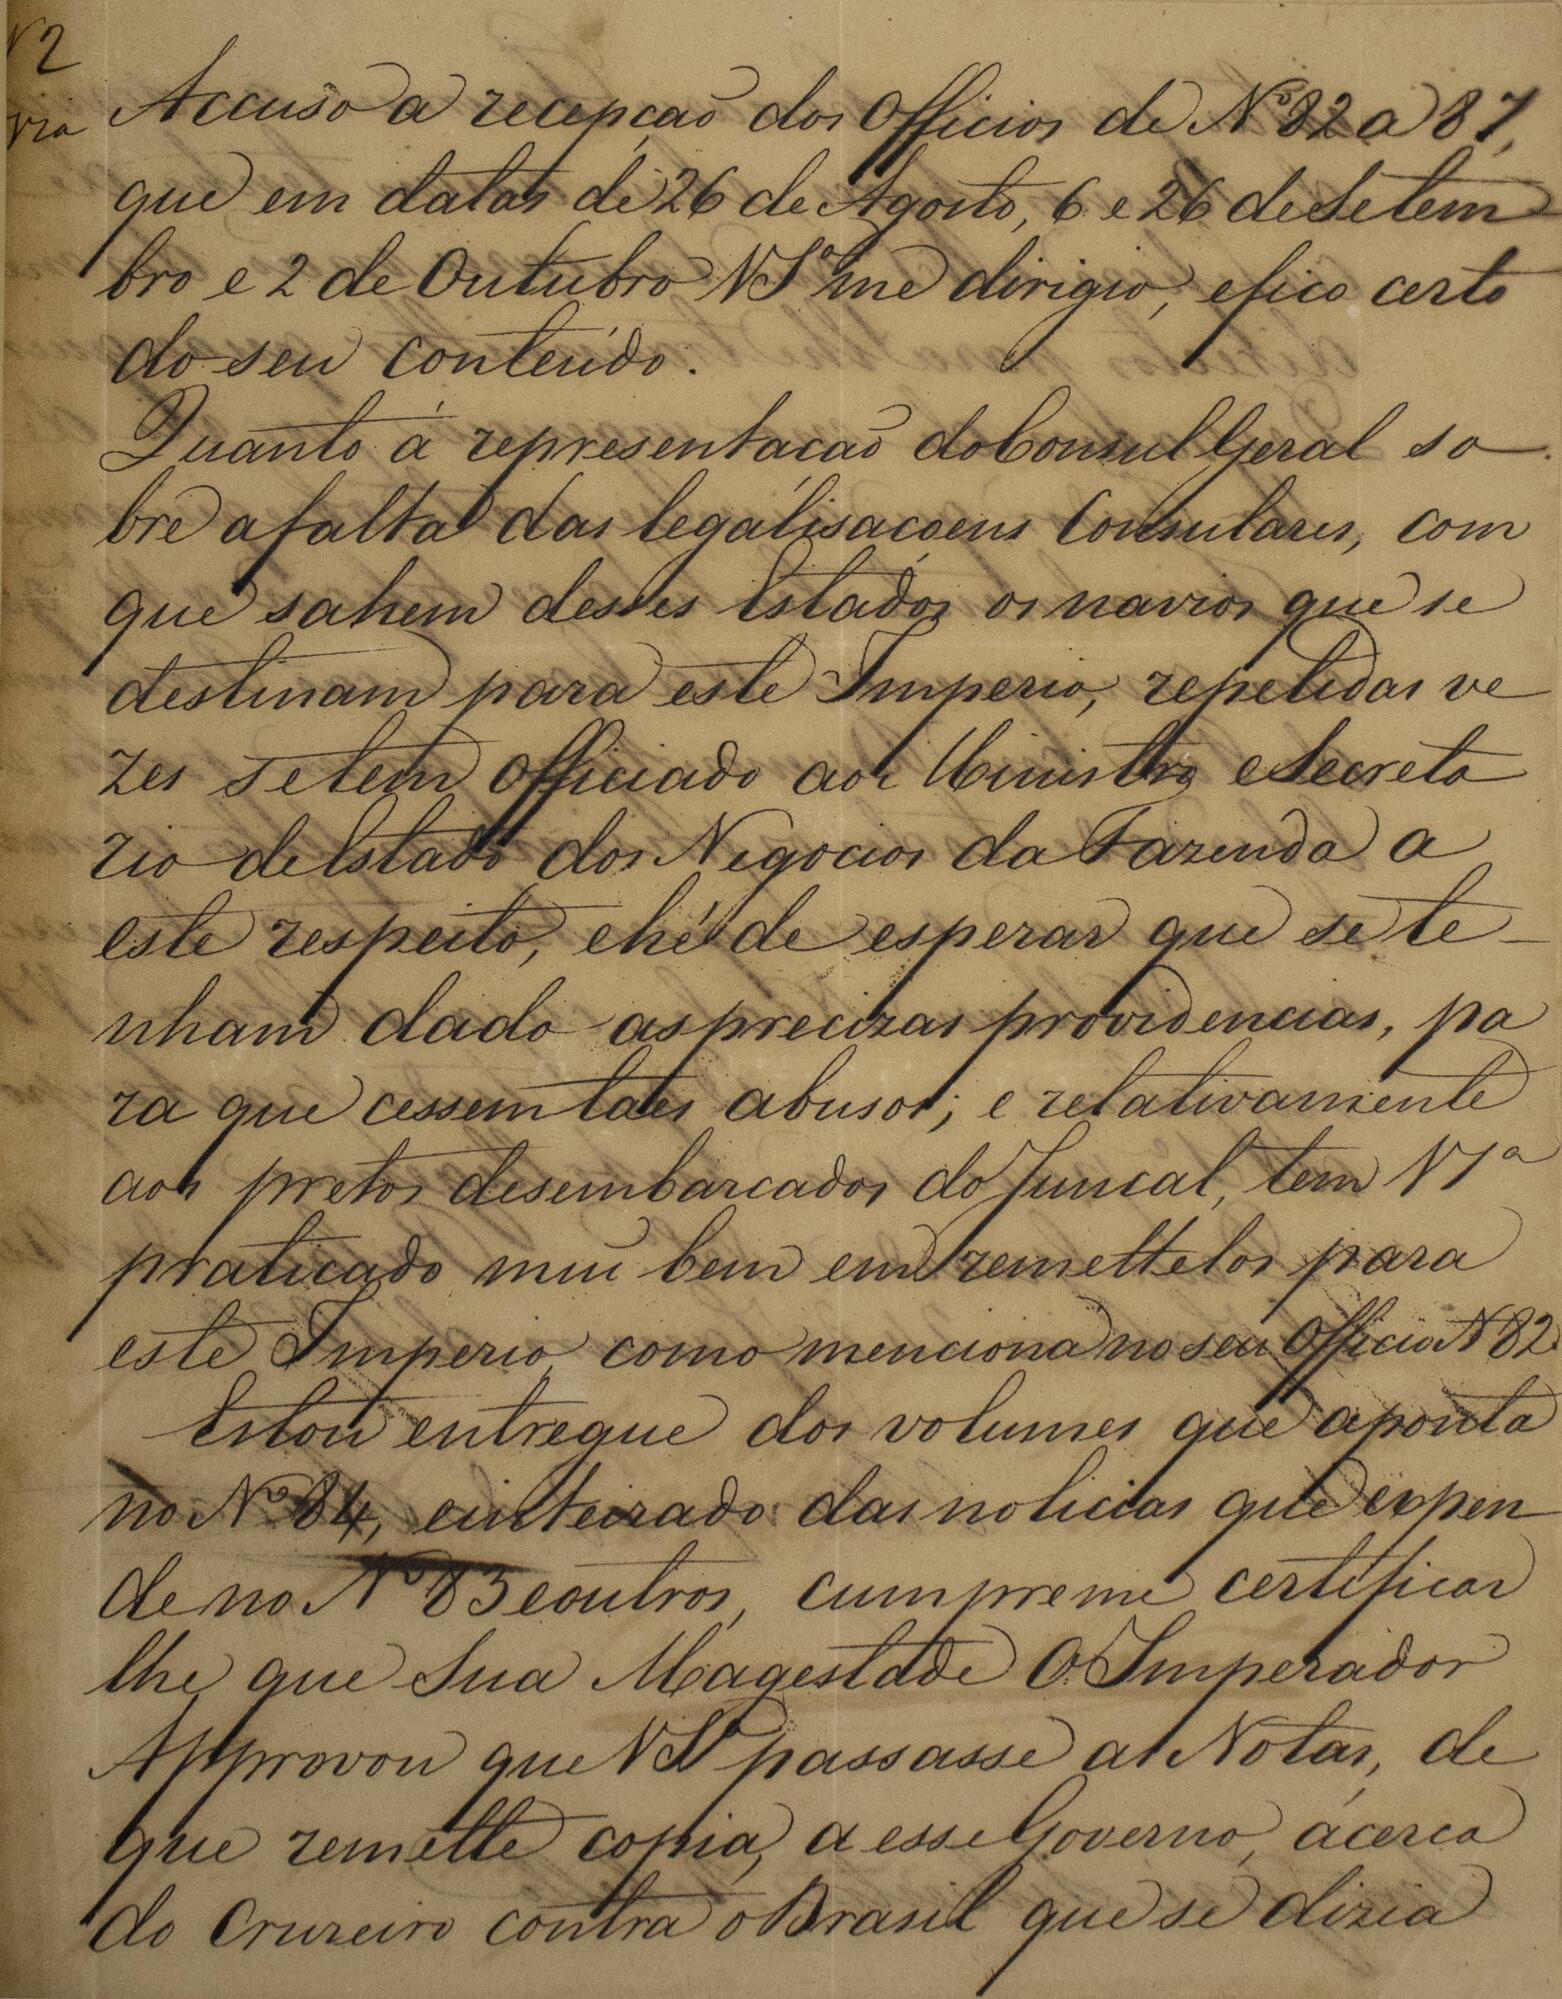 Nº 2
via
Accuso a recepção dos Officios de Nº 82 a 87,
que em datas de 26 de Agosto, 6 e 26 de Setem
bro e 2 de Outubro VSª me dirigio, e fico certo
do seu conteúdo.
Quanto á representação do Consul Geral so
bre a falta das legalisaçoens Consulares, com
que sahem desses Estados os navios que se
destinam para este Imperio, repetidas ve
zes se tem Officiado ao Ministro e Secreta
rio de Estado dos Negocios da Fazenda a
este respeito, e hé de esperar que se te-
nham dado as precizas providencias, pa
ra que cessem taes abusos; e relativamente
aos pretos desembarcados do Juncal, tem VSª
praticado mui bem em remettelos para
este Imperio, como menciona no seu Officio N 82.
Estou entregue dos volumes que aponta
no Nº 84, e inteirado das noticias que expen
de no Nº 83 e outros, cumpreme certificar
lhe que Sua Magestade O Imperador
Approvou que VSª passasse as Notas, de
que remette copia, a esse Governo, ácerca
do Cruzeiro contra o Brasil que se dizia